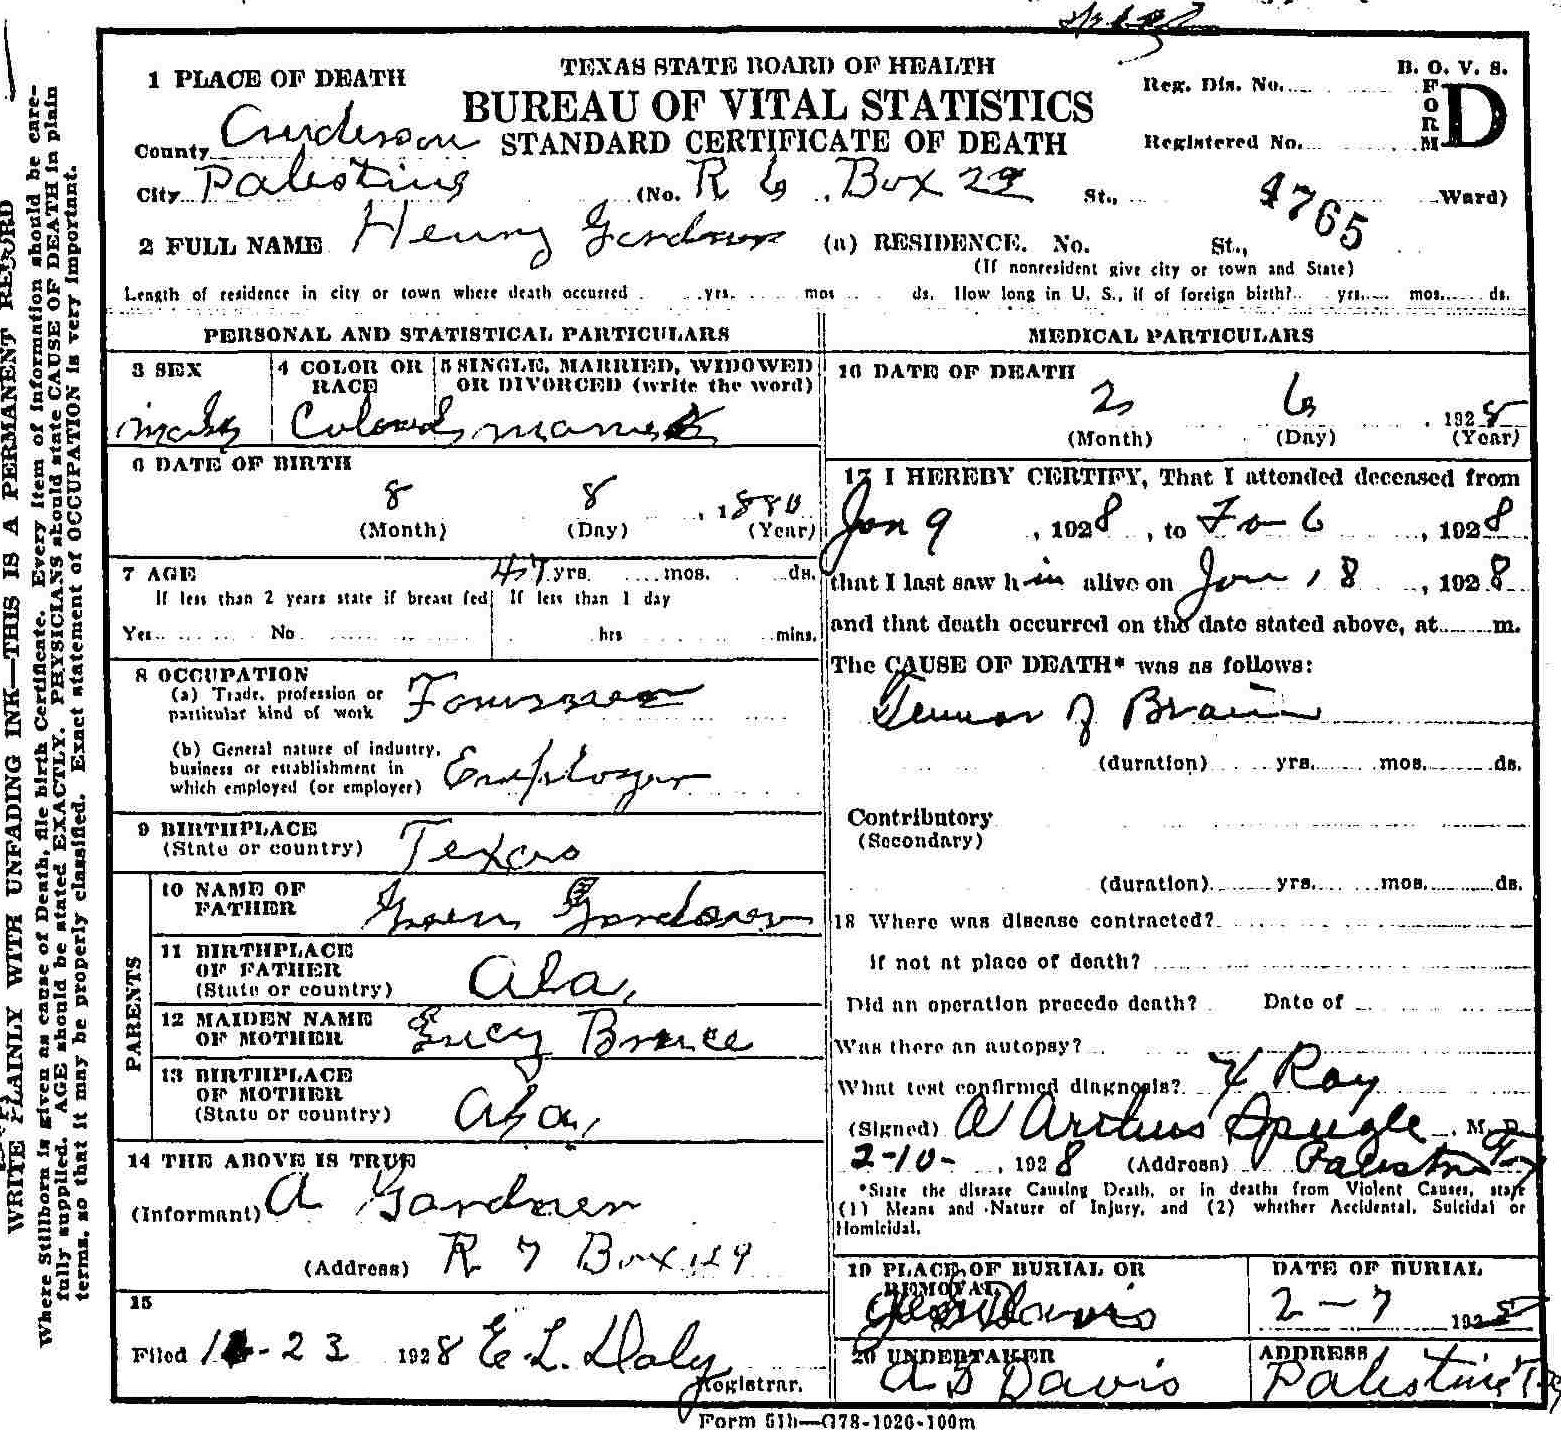 TEXAS STATE BOARD OF HEALTH
BUREAU OF VITAL STATISTICS
STANDARD CERTIFICATE OF DEATH
B. O. V. S.
FORM D
Reg. Dis. No.
Registered No.
4765
1 PLACE OF DEATH
County Anderson
City Palestine (No. R 6, Box 22 St., Ward)
2 FULL NAME Henry Gardner (a) RESIDENCE. No. St.,
(If nonresident give city or town and State)
Length of residence in city or town where death occurred yrs. mos ds. How long in U. S., if of foreign birth? yrs. mos. ds.
PERSONAL AND STATISTICAL PARTICULARS
3 SEX
male
4 COLOR OR RACE
Colored
5 SINGLE, MARRIED, WIDOWED
OR DIVORCED (write the word)
married
6 DATE OF BIRTH
8 8, 1880
(Month) (Day) (Year)
7 AGE 47 yrs. mos. ds.
If less than 2 years state if breast fed
Yes No
If less than 1 day
hrs mins.
8 OCCUPATION
(a) Trade, profession or
particular kind of work Farmer
(b) General nature of industry,
business or establishment in
which employed (or employer) Employer
9 BIRTHPLACE
(State or country) Texas
PARENTS
10 NAME OF
FATHER Green Gardner
11 BIRTHPLACE
OF FATHER
(State or country) Ala,
12 MAIDEN NAME
OF MOTHER Lucy Bruce
13 BIRTHPLACE
OF MOTHER
(State or country) Ala,
14 THE ABOVE IS TRUE
(Informant) A Gardner
(Address) R 7 Box 129
15
Filed 23 1928 E. L. Daly
Registrar.
MEDICAL PARTICULARS
16 DATE OF DEATH
2 6, 1928
(Month) (Day) (Year)
17 I HEREBY CERTIFY, That I attended deceased from
Jan 9, 1928, to 6, 1928
that I last saw him alive on Jan, 8, 1928
and that death occurred on the date stated above, at m.
The CAUSE OF DEATH* was as follows:
Tumor of Brain
(duration) yrs. mos. ds.
Contributory
(Secondary)
(duration) yrs. mos. ds.
18 Where was disease contracted?
if not at place of death?
Did an operation precede death? Date of
Was there an autopsy?
What test confirmed diagnosis? X Ray
(Signed) A Arthur Speegle M. D.
2-10-, 1928 (Address) Palestine Tex
*State the disease Causing Death, or in deaths from Violent Causes, state
(1) Means and Nature of Injury, and (2) whether Accidental, Suicidal or
Homicidal.
19 PLACE OF BURIAL OR
REMOVAL
DATE OF BURIAL
2-7 1928
20 UNDERTAKER
A S Davis
ADDRESS
Palestine Tex
Form 51b—G78-1026-100m
WRITE PLAINLY WITH UNFADING INK—THIS IS A PERMANENT RECORD
Where Stillborn is given as cause of Death, file birth Certificate. Every item of information should be care-
fully supplied. AGE should be stated EXACTLY. PHYSICIANS should state CAUSE OF DEATH in plain
terms, so that it may be properly classified. Exact statement of OCCUPATION is very important.